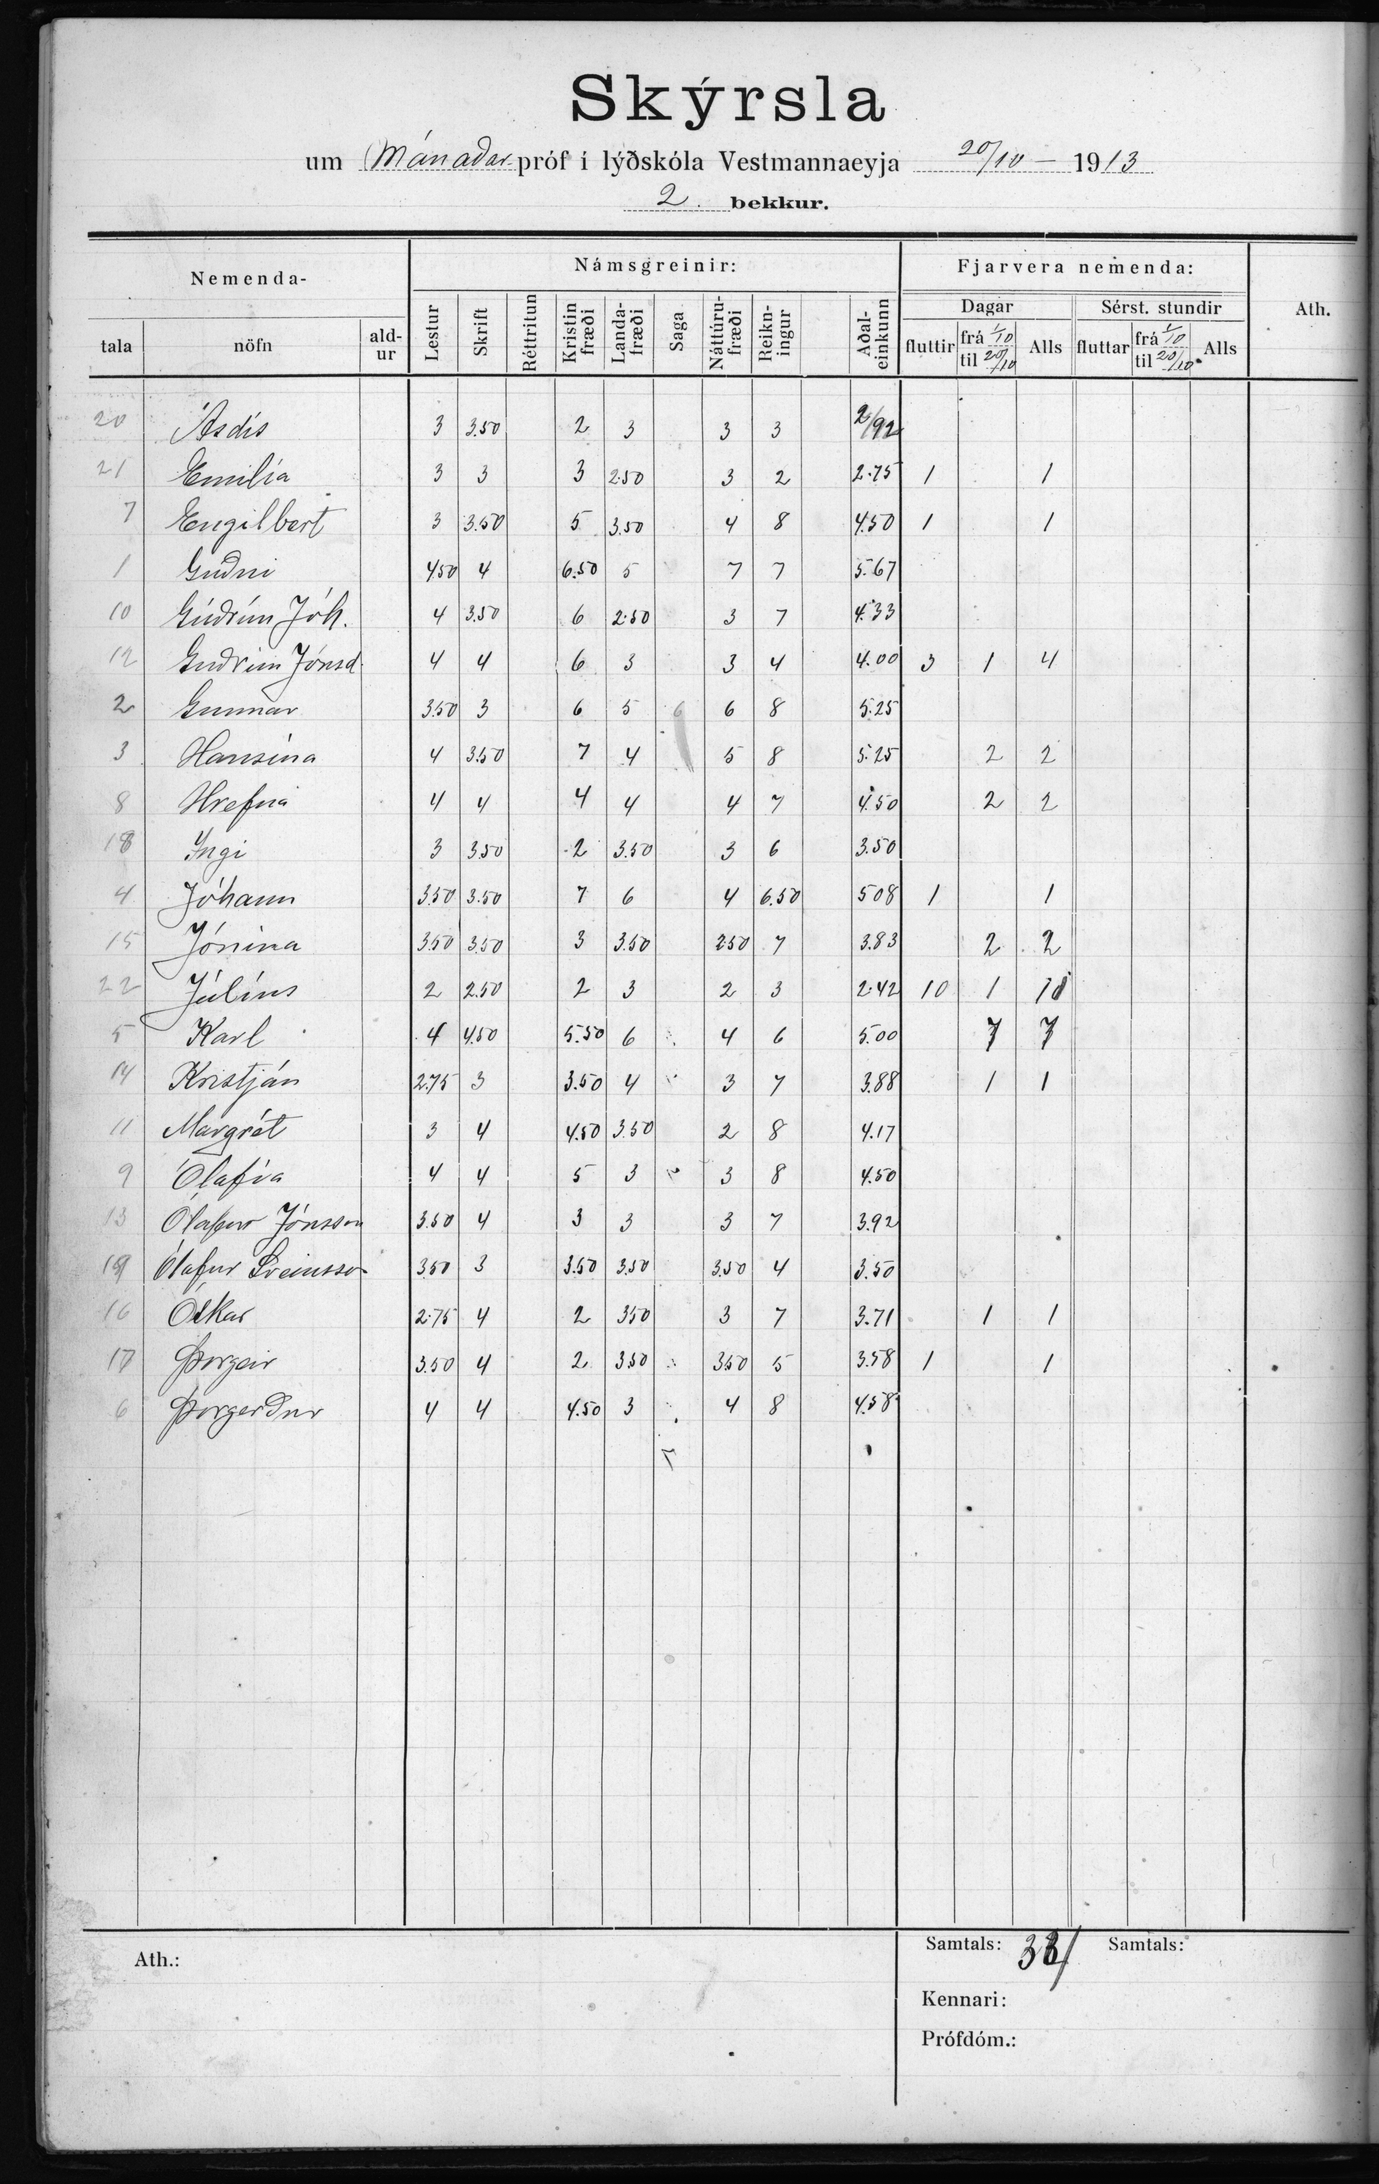 Skýrsla
um Mánaðar próf í lýðskóla Vestmannaeyja 20/10 – 1913
2. bekkur.
Nemenda- Námsgreinir: Fjarvera nemenda: Ath.
Dagar Sérst. stundir
tala nöfn ald-ur Lestur Skrift Réttritun Kristin fræði Landa-fræði Saga Náttúru-fræði Reikn-ingur Aðal-einkunn fluttir frá 1/10 til 20/10 Alls fluttar frá 1/10 til 20/10 Alls
20 Ásdís 3 3.50 2 3 3 3 2/92
21 Emilía 3 3 3 2.50 3 2 2.75 1 1
7 Engilbert 3 3.50 5 3.50 4 8 4.50 1 1
1 Guðni 4.50 4 6.50 5 7 7 5.67
10 Guðrún Jóh. 4 3.50 6 2.50 3 7 4.33
12 Guðrún Jónsd. 4 4 6 3 3 4 4.00 3 1 4
2 Gunnar 3.50 3 6 5 6 6 8 5.25
3 Hansína 4 3.50 7 4 5 8 5.25 2 2
8 Hrefna 4 4 4 4 4 7 4.50 2 2
18 Ingi 3 3.50 2 3.50 3 6 3.50
4 Jóhann 3.50 3.50 7 6 4 6.50 508 1 1
15 Jónína 3.50 3.50 3 3.50 2.50 7 3.83 2 2
22 Júlíus 2 2.50 2 3 2 3 2.42 10 1 11
5 Karl 4 4.50 5.50 6 4 6 5.00 7 7
14 Kristján 2.75 3 3.50 4 3 7 3.88 1 1
11 Margrét 3 4 4.50 3.50 2 8 4.17
9 Ólafía 4 4 5 3 3 8 4.50
13 Ólafur Jónsson 3.50 4 3 3 3 7 3.92
19 Ólafur Sveinsson 3.50 3 3.50 3.50 3.50 4 3.50
16 Óskar 2.75 4 2 350 3 7 3.71 1 1
17 Þorgeir 3.50 4 2 3.50 3.50 5 3.58 1 1
6 Þorgerður 4 4 4.50 3 4 8 4.58
Ath.: Samtals: Samtals:
Kennari:
Prófdóm.: